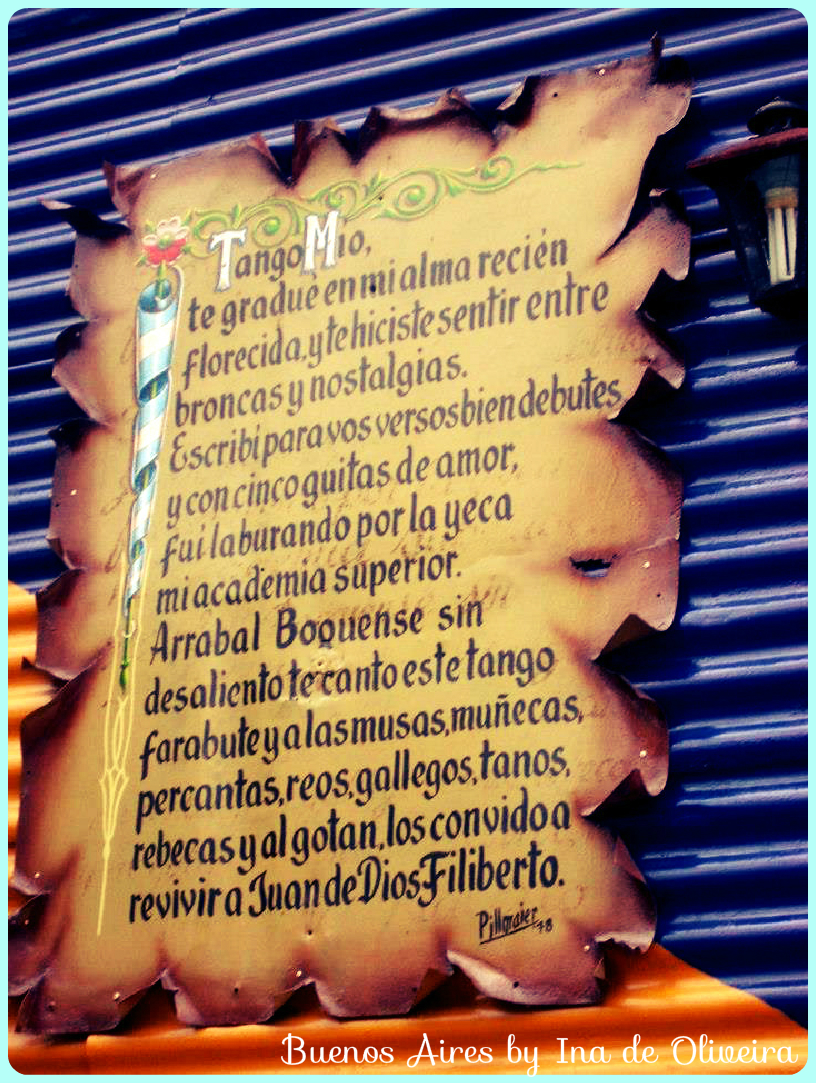 Tango Mio,
te gradué en mi alma recién
florecida, y te hiciste sentir entre
broncas y nostalgias.
Escribi para vos versos bien debutes
y con cinco guitas de amor,
fui laburando por la yeca
mi academia superior.
Arrabal Boquense sin
desaliento te canto este tango
farabute y a las musas, muñecas,
percantas, reos, gallegos, tanos,
rebecas y al gotan, los convido a
revivir a Juan de Dios Filiberto.
Buenos Aires by Ina de Oliveira